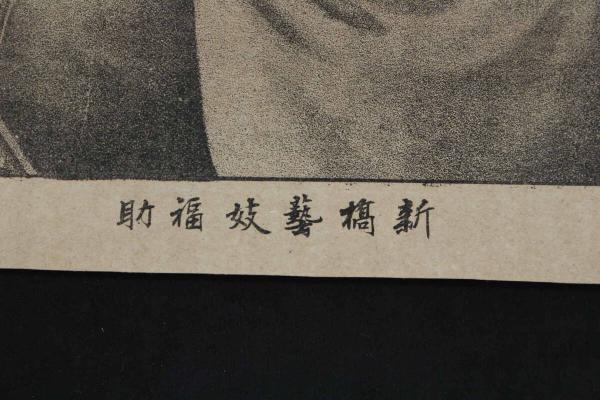 新橋藝妓福助